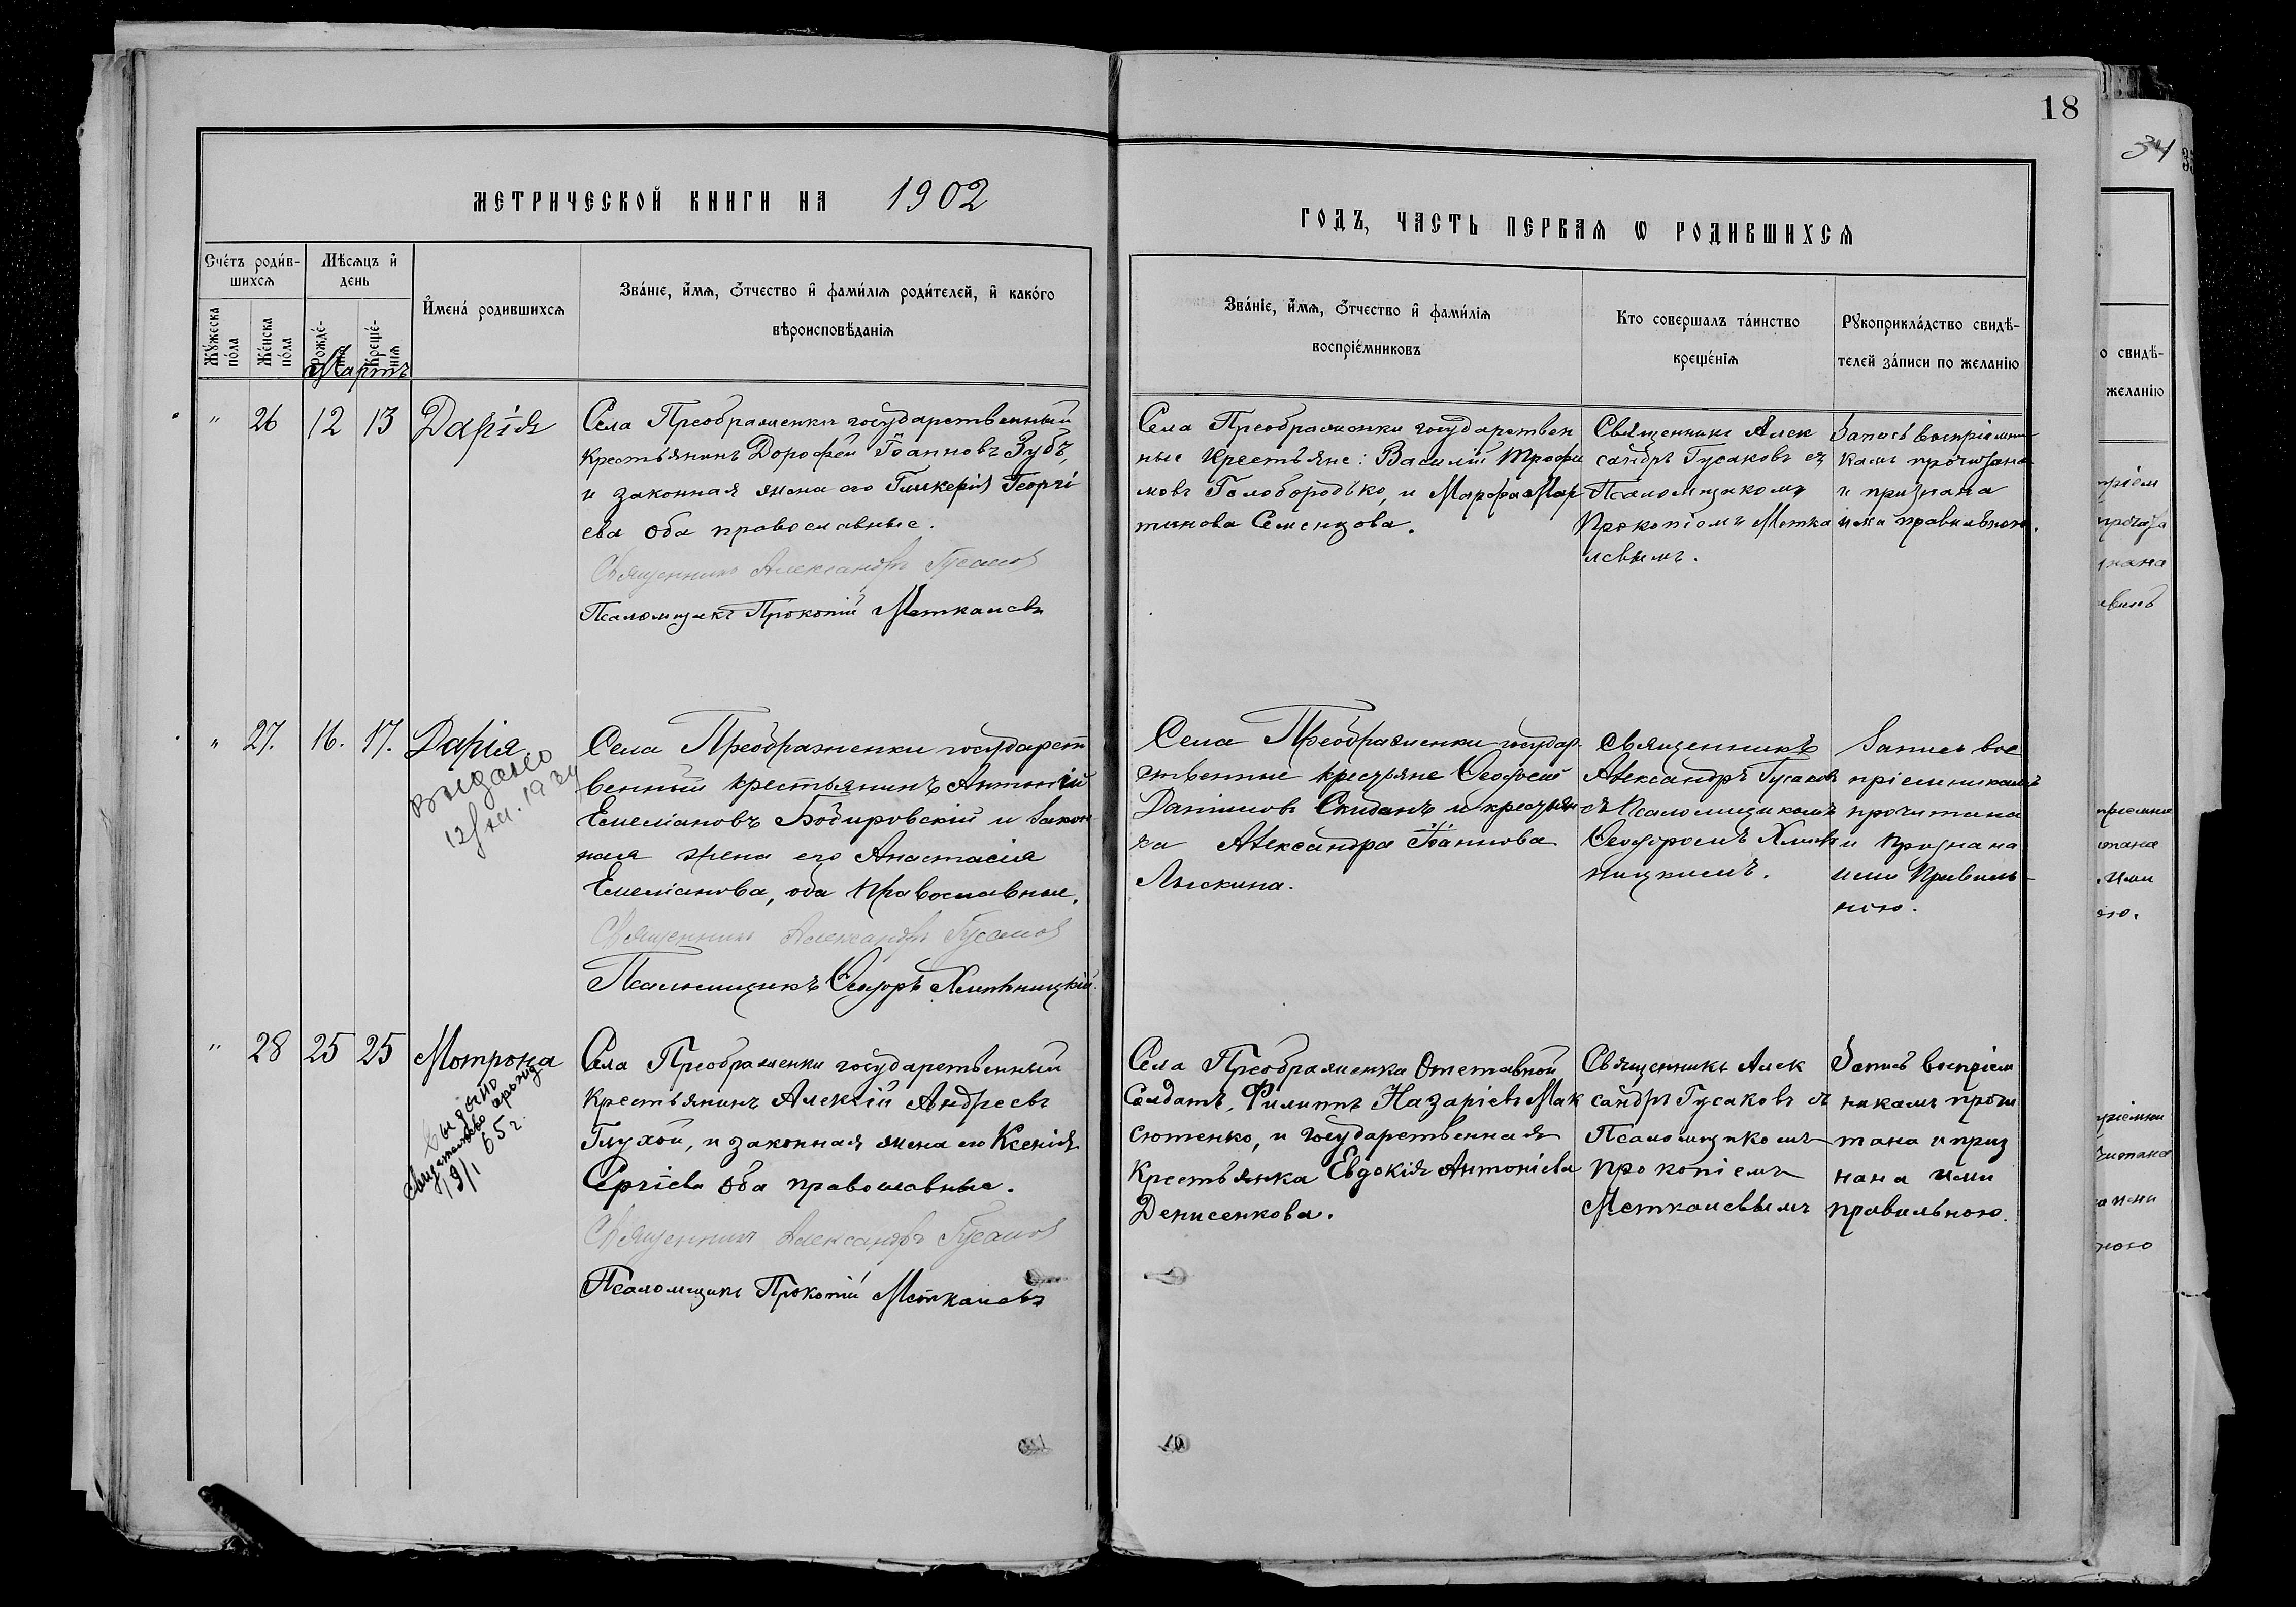 18
34
МЕТРИЧЕСКОЙ КНИГИ НА 1902
ГОДЪ, ЧАСТЬ ПЕРВАѦ Ѡ РОДИВШИХСѦ
Сче́тъ роди́в-
шихсѧ
Мѣсѧцъ и҆
день
И҆мена̀ родившихсѧ
Зва́нїе, и҆́мѧ, ѻ҆́тчество и҆ фами́лїѧ роди́телей, и҆ како́го
вѣроисповѣ́данїѧ
Мꙋ́жеска
по́ла
Же́нска
по́ла
Рожде́-
Креще́-
нїѧ
Мартъ
Зва́нїе, и҆́мѧ, ѻ҆́тчество и҆ фами́лїѧ
воспрїе́мниковъ
Кто совершалъ та́инство
креще́нїѧ
Рꙋкоприкла́дство свидѣ́-
телей за́писи по желанїю
" 26 12 13 Дарія
Села Преображенки государственный
крестьянинъ Дорофей Іоанновъ Зубъ,
и законная жена его Гликерія Георгі
ева оба православные.
Священникъ Александръ Гусаков
Псаломщикъ Прокопій Меткалевъ
Села Преображенки государствен
ные крестьяне: Василій Трофи
мовъ Голобородько, и Марфа Мар
тинова Семенцова.
Священникъ Алек
сандръ Гусаковъ съ
Псаломщикомъ
Прокопіомъ Метка
левымъ.
Запись воспріемни
камъ прочитана
и признана
ими правильною.
" 27. 16. 17. Дарія
выдано
Села Преображенки государст
венный крестьянинъ Антоній
Емеліановъ Бодировскій и закон
ная жена его Анастасія
Емеліанова, оба православные.
Священникъ Александръ Гусаков
Псаломщикъ Ѳеодоръ Хмельницкій.
Села Преображенки государ-
ственные крестьяне Ѳеодосій
Даніиловъ Скиданъ и крестьян
ка Александра Іоаннова
Лыскина.
Священникъ
Александръ Гусаковъ
съ Псаломщикомъ
Ѳеодоромъ Хмель
ницкимъ.
Запись вос
пріемникамъ
прочитана
и признана
ими правиль-
ною.
" 28 25 25 Мотрона
выдано
свидетельство о рожд
19/I 65 г.
Села Преображенки государственный
крестьянинъ Алексій Андреевъ
Глухой, и законная жена его Ксенія
Сергіева оба православные.
Священникъ Александръ Гусаков
Псаломщикъ Прокопій Меткалевъ
Села Преображенка Отставной
Солдатъ, Филиппъ Назаріевъ Мак
сютенко, и государственная
крестьянка Евдокія Антоніева
Денисенкова.
Священникъ Алек
сандръ Гусаковъ съ
Псаломщикомъ
Прокопіемъ
Меткалевымъ
Запись воспріем
никамъ прочи
тана и приз
нана ими
правильною.
о свидѣ-
желанїю